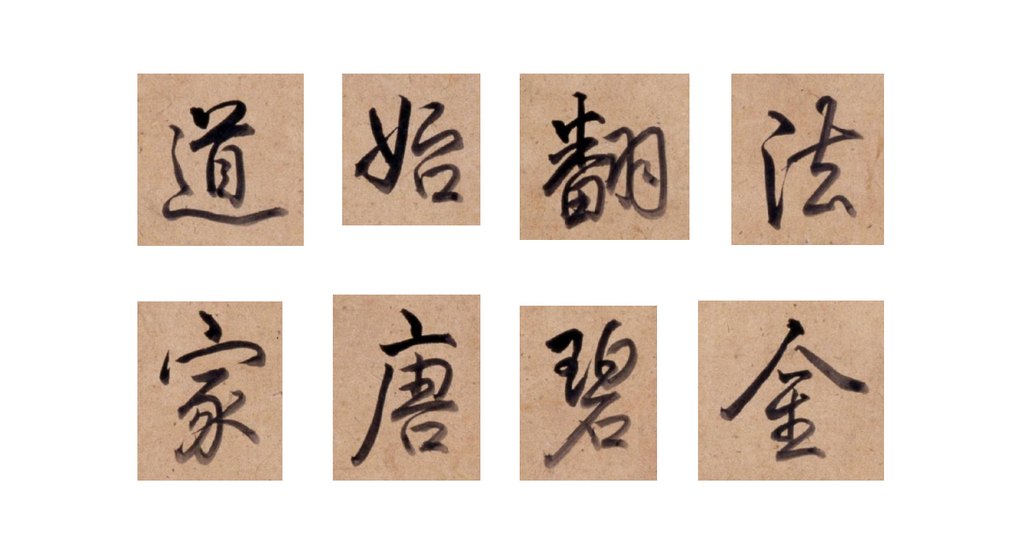 道始翻法
家唐碧金